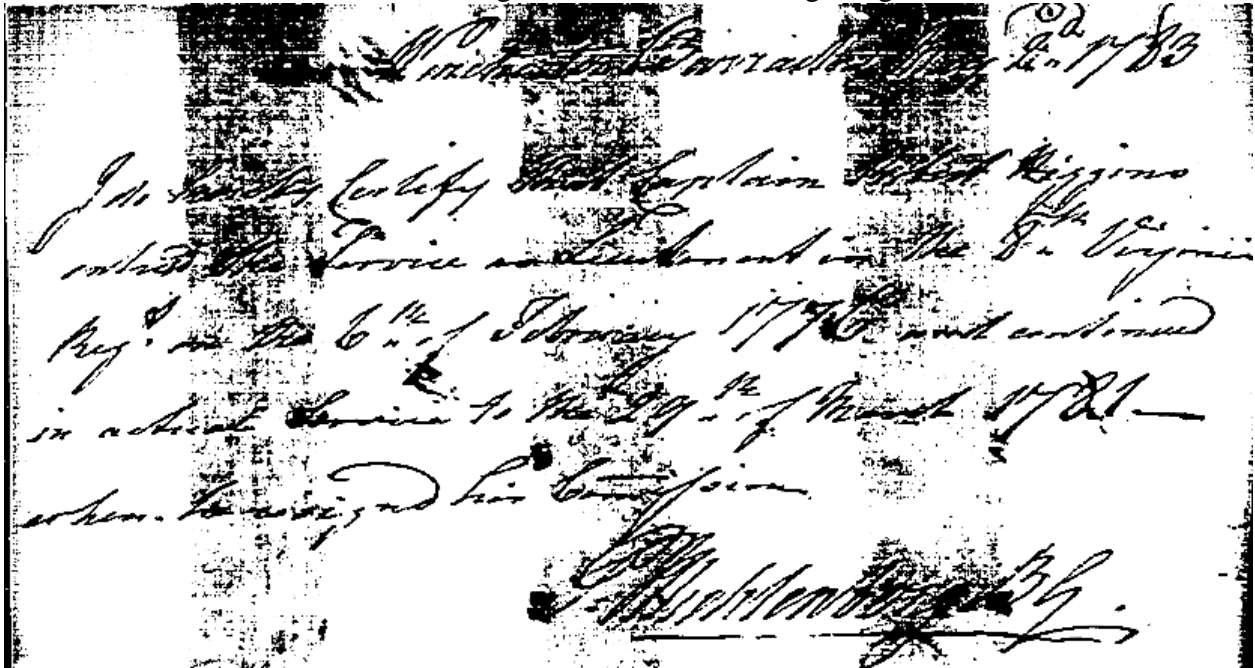 Winchester Barracks May 2d 1783
I do hereby Certify that Captain Robert Higgins
entred the Service as Lieutenant in the 8th Virginia
Regt. on the 6th of February 1776 and continued
in actual Service to the 29th of March 1781 —
when he resignd his Commission
P. Muhlenberg B G.